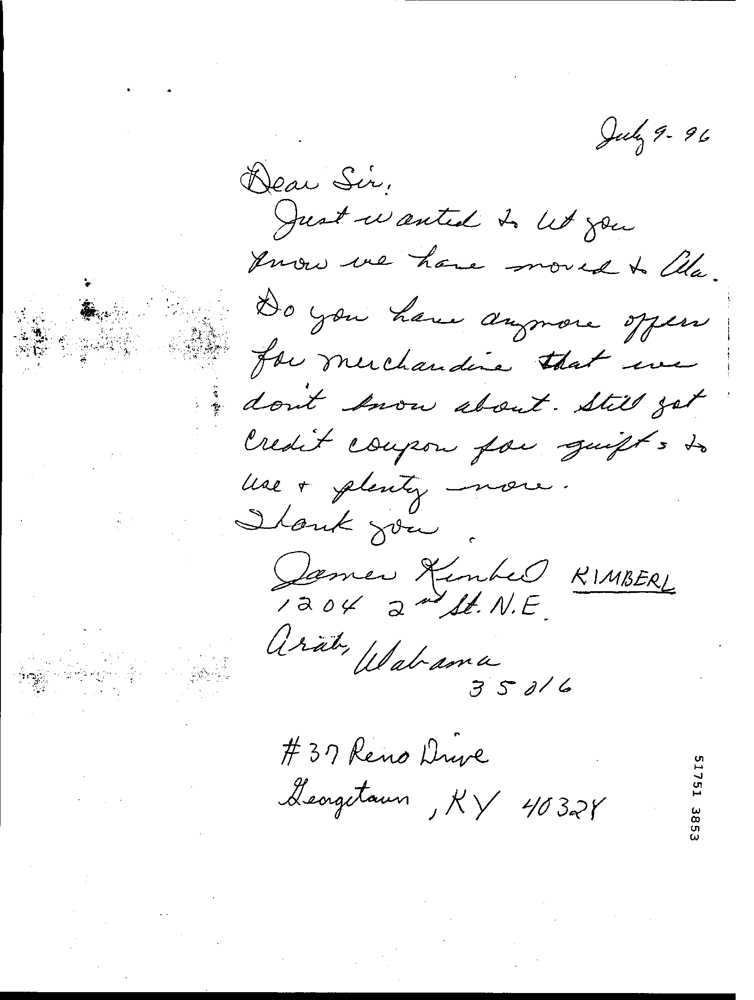 July 9-96
Dear Sir,
Just wanted to let you
know we have moved to Ala.
Do you have anymore offers
for merchandise that we
don't know about. Still got
credit coupon for guifts to
use + plenty more.
Thank you
James Kimberl KIMBERL
1204 2nd St. N.E.
Arab, Alabama
35016
#37 Reno Drive
Georgetown, KY 40324
51751 3853